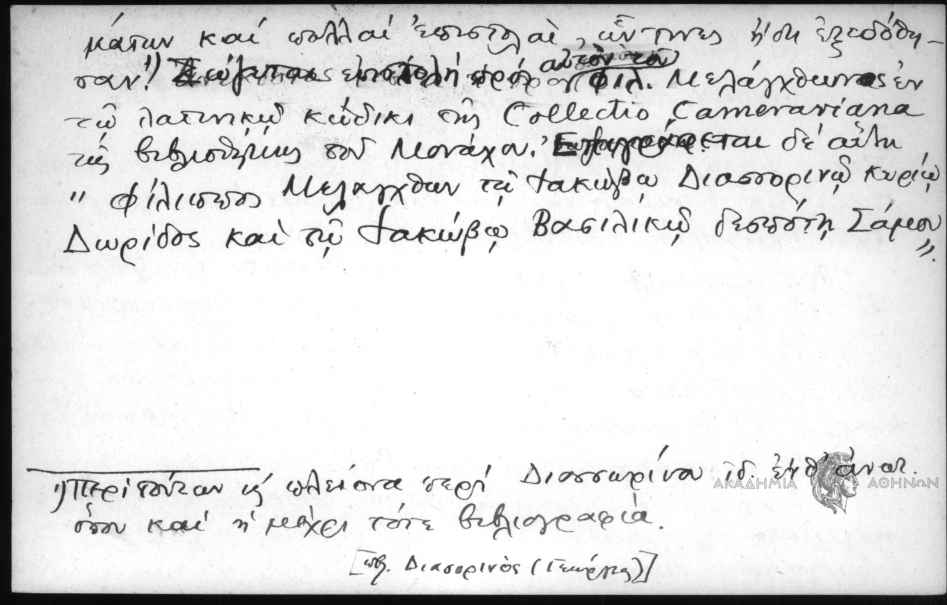 μάτων καὶ πολλαὶ ἐπιστολαὶ, ὧν τινες ἤδη ἐξεδόθη-
σαν¹) Σώζεται ἐπιστολὴ πρὸς αὐτὸν τοῦ Φιλ. Μελάγχθωνος ἐν
τῷ λατινικῷ κώδικι τῆς Collectio Camerariana
τῆς βιβλιοθήκης τοῦ Μονάχου. Ἐπιγράφεται δὲ αὕτη
"Φίλιππος Μελαγχθων τῷ Ἰακώβῳ Διασσορινῷ κυρίῳ
Δωρίδος καὶ τῷ Ἰακώβῳ Βασιλικῷ δεσπότῃ Σάμου".
1) Περὶ τούτων πλείονα περὶ Διασσωρίνου ἰδ. ἀνωτ.
ὅπου καὶ ἡ μέχρι τότε βιβλιογραφία.
[πβ. Διασορινὸς (Γεώργιος)]
ΑΚΑΔΗΜΙΑ ΑΘΗΝΩΝ